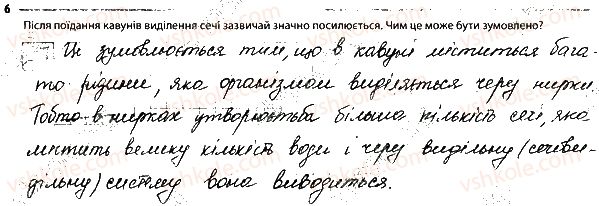 6
Після поїдання кавунів виділення сечі зазвичай значно посилюється. Чим це може бути зумовлено?
Це зумовлюється тим, що в кавуні міститься бага-
то рідини, яка організмом виділяється через нирки.
Тобто в нирках утворюється більша кількість сечі, яка
містить велику кількість води і через видільну (сечови-
дільну) систему вона виводиться.
vshkole.com